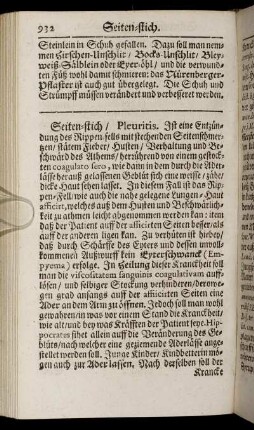 932 Seiten-stich.
Steinlein in Schuh gefallen. Dazu soll man nem-
men Hirschen-Unschlit / Bocks-Unschlit / Bley-
weiß-Sälblein oder Eyer-öhl / und die verwund-
ten Füß wohl damit schmieren: das Nürenberger-
Pflaster ist auch gut übergelegt. Die Schuh und
Strümpff müssen verändert und verbessert werden.
Seiten-stich / Pleuritis. Ist eine Entzün-
dung des Rippen-fells mit stechenden Seitenschmer-
tzen / stätem Fieber / Husten / Verhaltung und Be-
schwärd des Athems / herrührend von einem gestock-
ten coagulato sero, wie dann in dem durch die Ader-
lässe herauß gelassenen Geblüt sich eine weisse / zähe /
dicke Haut sehen lasset. In diesem Fall ist das Rip-
pen-Fell / wie auch die nahe gelegene Lungen-Haut
afficirt, welches auß dem Husten und Beschwärlich-
keit zu athmen leicht abgenommen werden kan: item
daß der Patient auff der afficirten Seiten besser als
auff der anderen ligen kan. Zu verhüten ist hiebey /
daß durch Schärffe des Eyters und dessen unvoll-
kommenen Außwurff kein Eyterschwanck / (Em-
pyema) erfolge. In Heilung dieser Kranckheit soll
man die viscositatem sanguinis coagulativam auff-
lösen / und selbiger Stockung verhinderen / derowe-
gen grad anfangs auff der afficirten Seiten eine
Ader an dem Arm zu öffnen. Jedoch soll man wohl
gewahren / in was vor einem Stand die Kranckheit /
wie alt / und bey was Kräfften der Patient seye. Hip-
pocrates sihet allein auff die Veränderung des Ge-
blüts / nach welcher eine geziemende Aderlässe ange-
stellet werden soll. Junge Kinder / Kindbetterin mö-
gen auch zur Ader lassen. Nach derselben soll der
Krancke